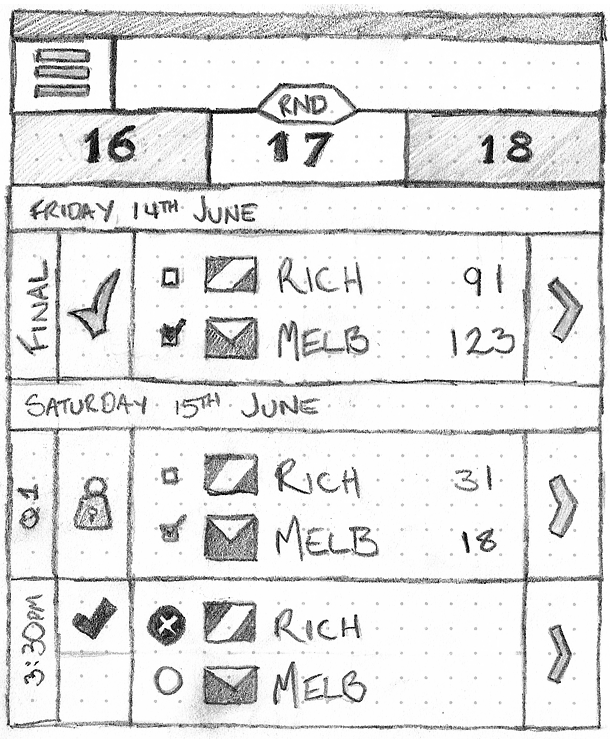 RND
16 17 18
FRIDAY 14TH JUNE
FINAL
RICH 91
MELB 123
SATURDAY 15TH JUNE
Q1
RICH 31
MELB 18
3:30PM
RICH
MELB